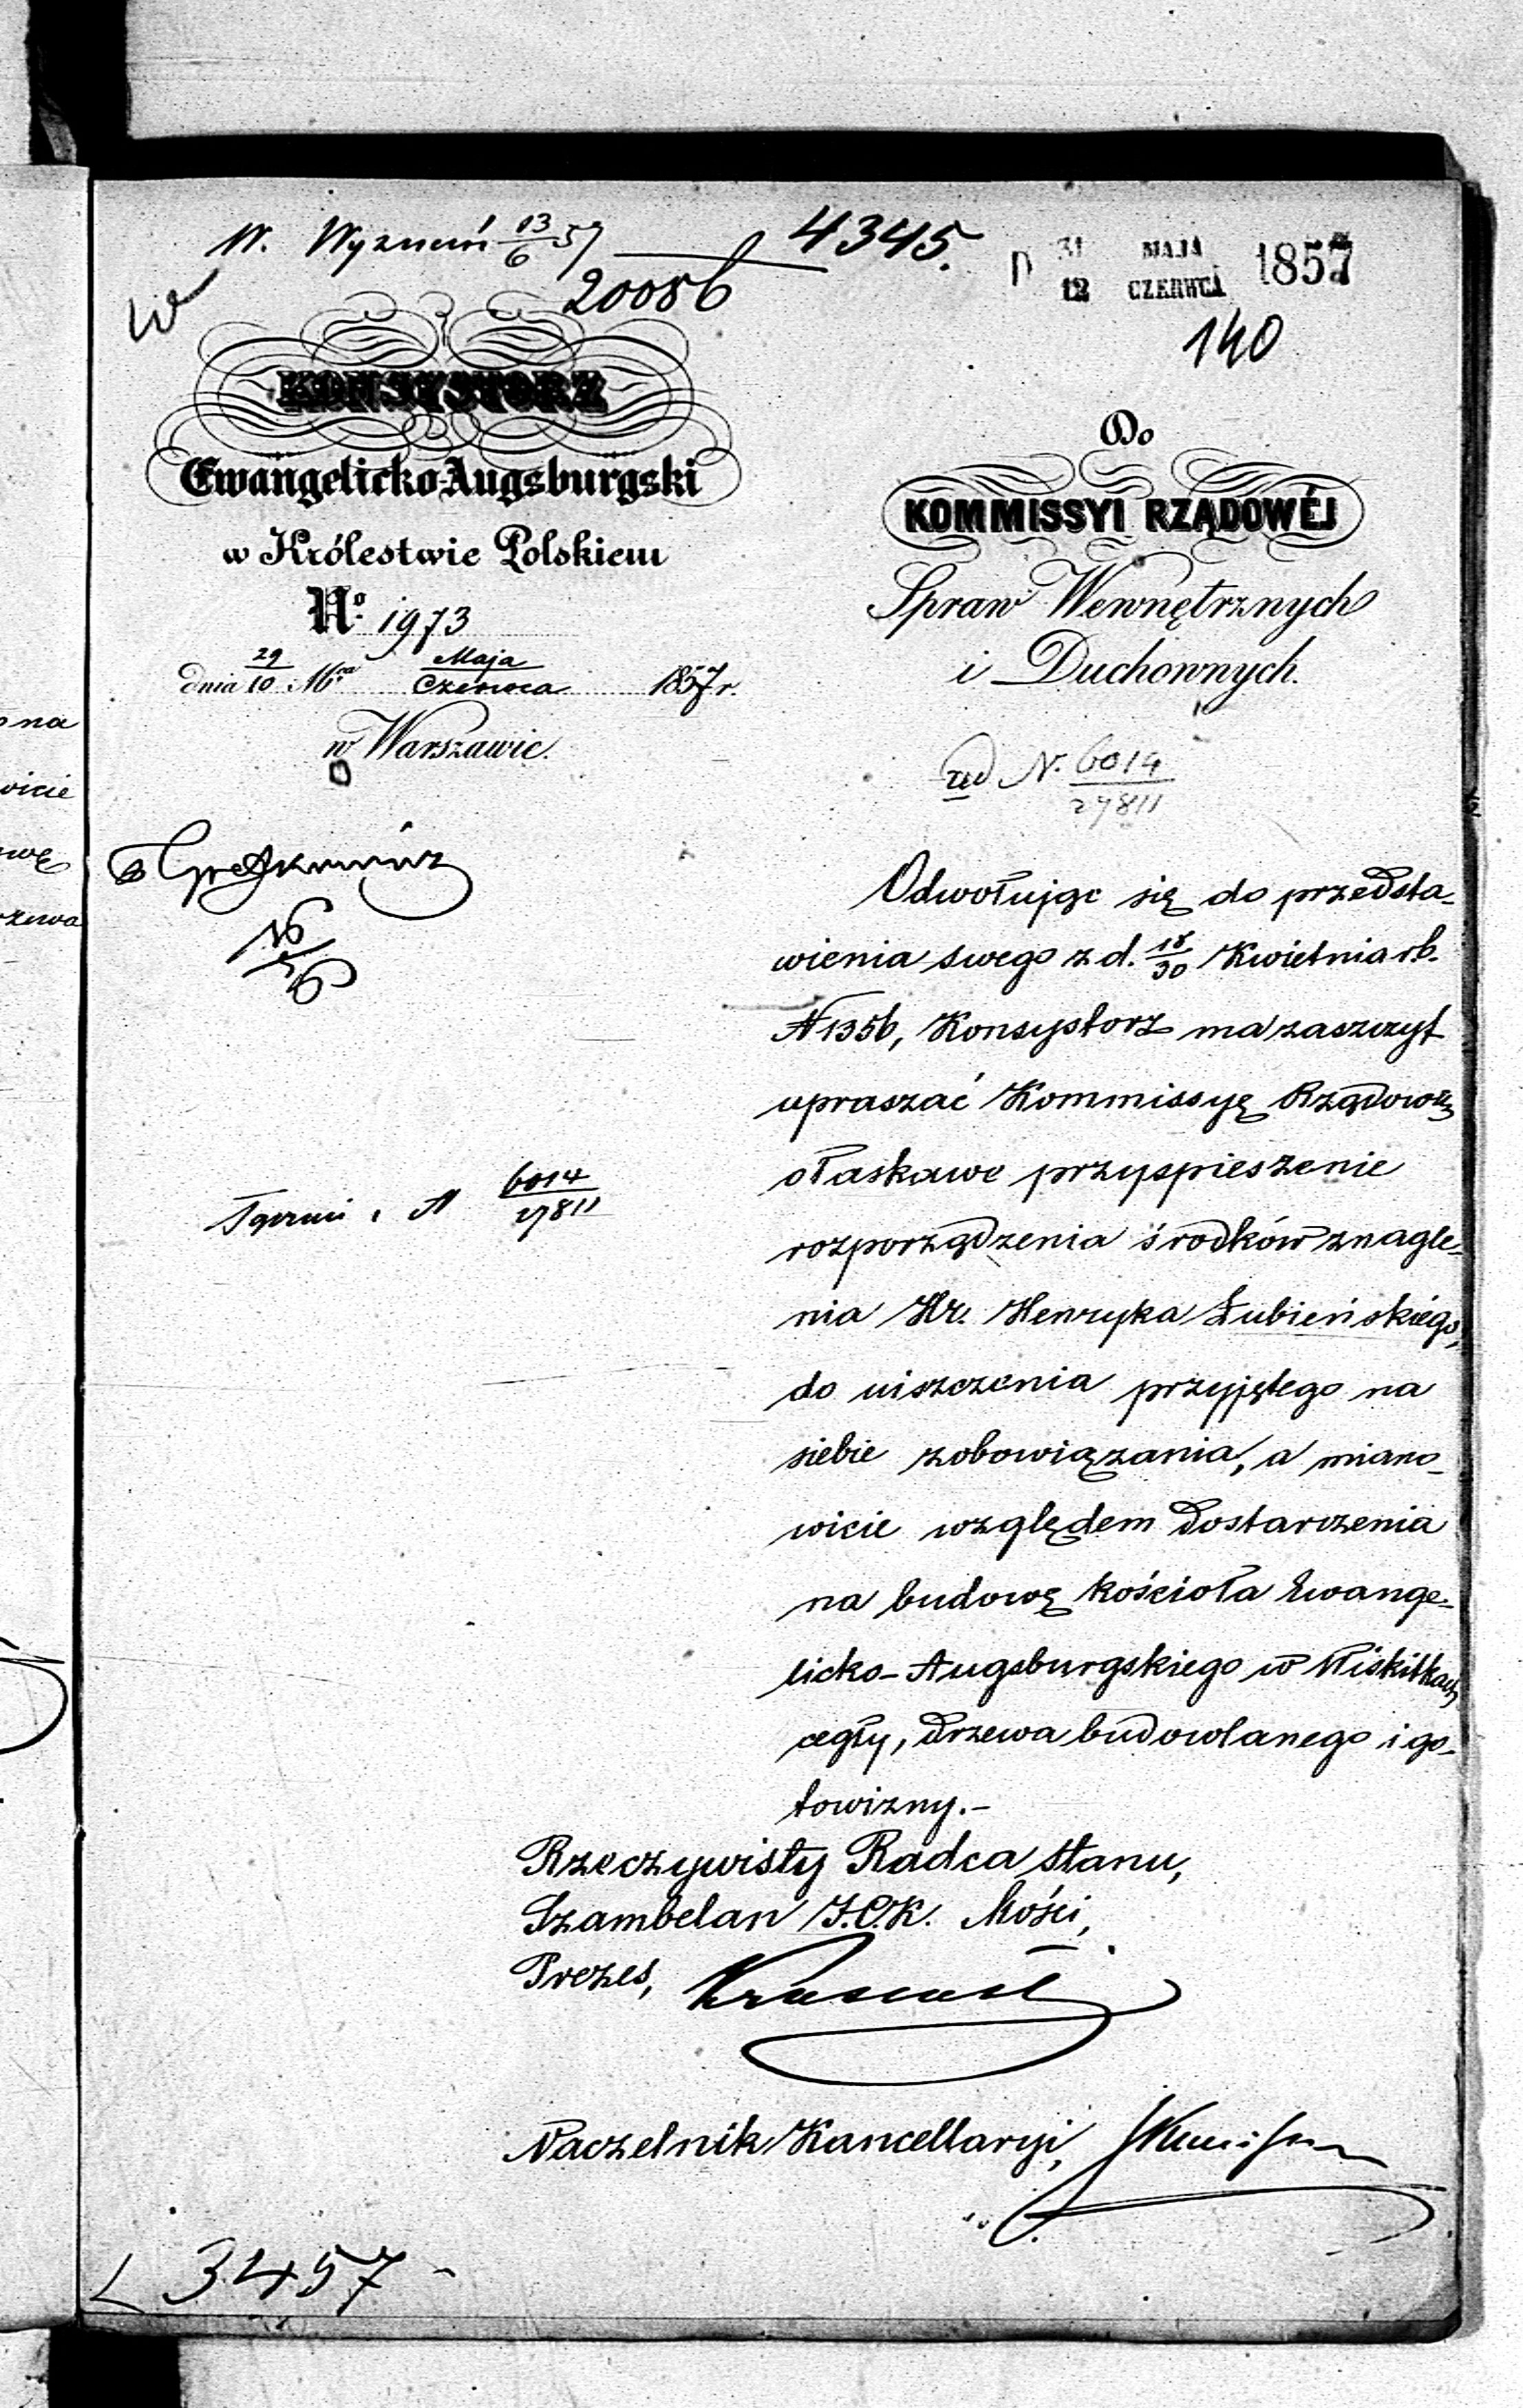 W. Wyznań 13/6 57
4345.
20086
D 31 MAJA 1857
12 CZERWCA
140
KONSYSTORZ
Ewangelicko-Augsburgski
w Królestwie Polskiem
No. 1973
dnia 29/10 Mca Maja/Czerwca 1857 r.
w Warszawie.
Do
KOMMISSYI RZĄDOWÉJ
Spraw Wewnętrznych
i Duchownych.
ad N. 6014/27811
Odwołując się do przedsta-
wienia swego z d. 18/30 Kwietnia r.b.
N 1356, Konsystorz ma zaszczyt
upraszać Kommissyę Rządową
o łaskawe przyspieszenie
rozporządzenia środków znagle-
nia Hr. Henryka Łubieńskiego,
do uiszczenia przyjętego na
siebie zobowiązania, a miano-
wicie względem dostarczenia
na budowę kościoła Ewange-
licko-Augsburgskiego w Wiskitkach
cegły, drzewa budowlanego i go-
towizny.-
N 6014/27811
Rzeczywisty Radca Stanu,
Szambelan J.C.K. Mości,
Prezes,
Naczelnik Kancellaryi,
3457
na
wicie
wę
rzewa